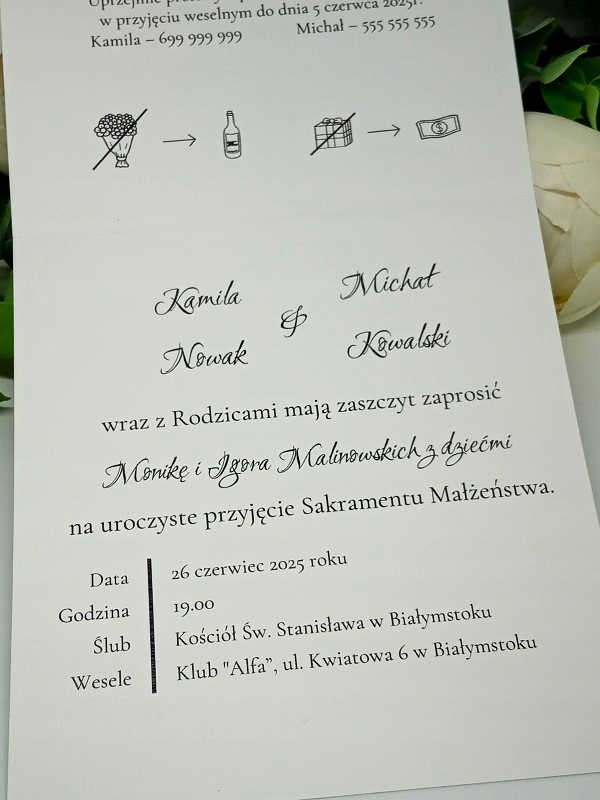 Uprzejmie
w przyjęciu weselnym do dnia 5 czerwca 2025r.
Kamila – 699 999 999 Michał – 555 555 555
$
Kamila Michał
&
Nowak Kowalski
wraz z Rodzicami mają zaszczyt zaprosić
Monikę i Igora Malinowskich z dziećmi
na uroczyste przyjęcie Sakramentu Małżeństwa.
Data 26 czerwiec 2025 roku
Godzina 19.00
Ślub Kościół Św. Stanisława w Białymstoku
Wesele Klub "Alfa”, ul. Kwiatowa 6 w Białymstoku